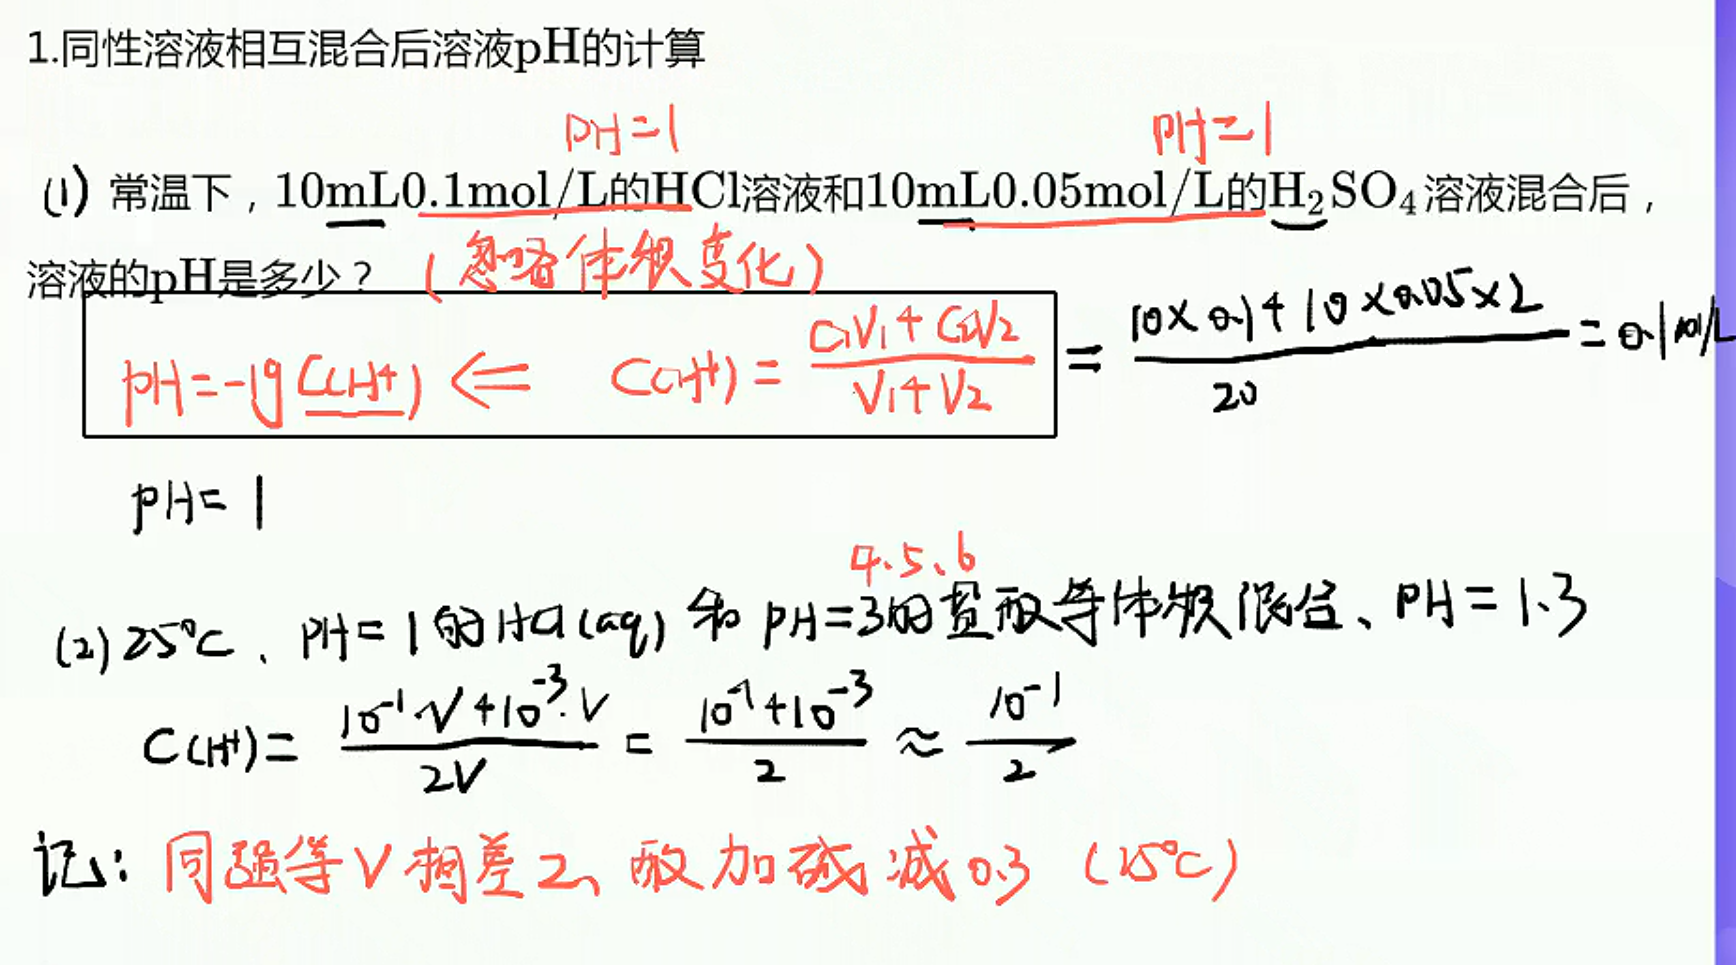 1.同性溶液相互混合后溶液pH的计算
pH=1 pH=1
(1) 常温下，10mL0.1mol/L的HCl溶液和10mL0.05mol/L的H₂SO₄溶液混合后，
溶液的pH是多少？（忽略体积变化）
pH=-lg C(H⁺) ⇐ C(H⁺) = (C₁V₁+C₂V₂)/(V₁+V₂) = (10×0.1+10×0.05×2)/20 = 0.1mol/L
pH=1
4、5、6
(2) 25℃、PH=1的HCl(aq)和pH=3的盐酸等体积混合、PH=1.3
C(H⁺)= (10⁻¹·V+10⁻³·V)/2V = (10⁻¹+10⁻³)/2 ≈ 10⁻¹/2
记：同强等V相差2、酸加碱减0.3（25℃）